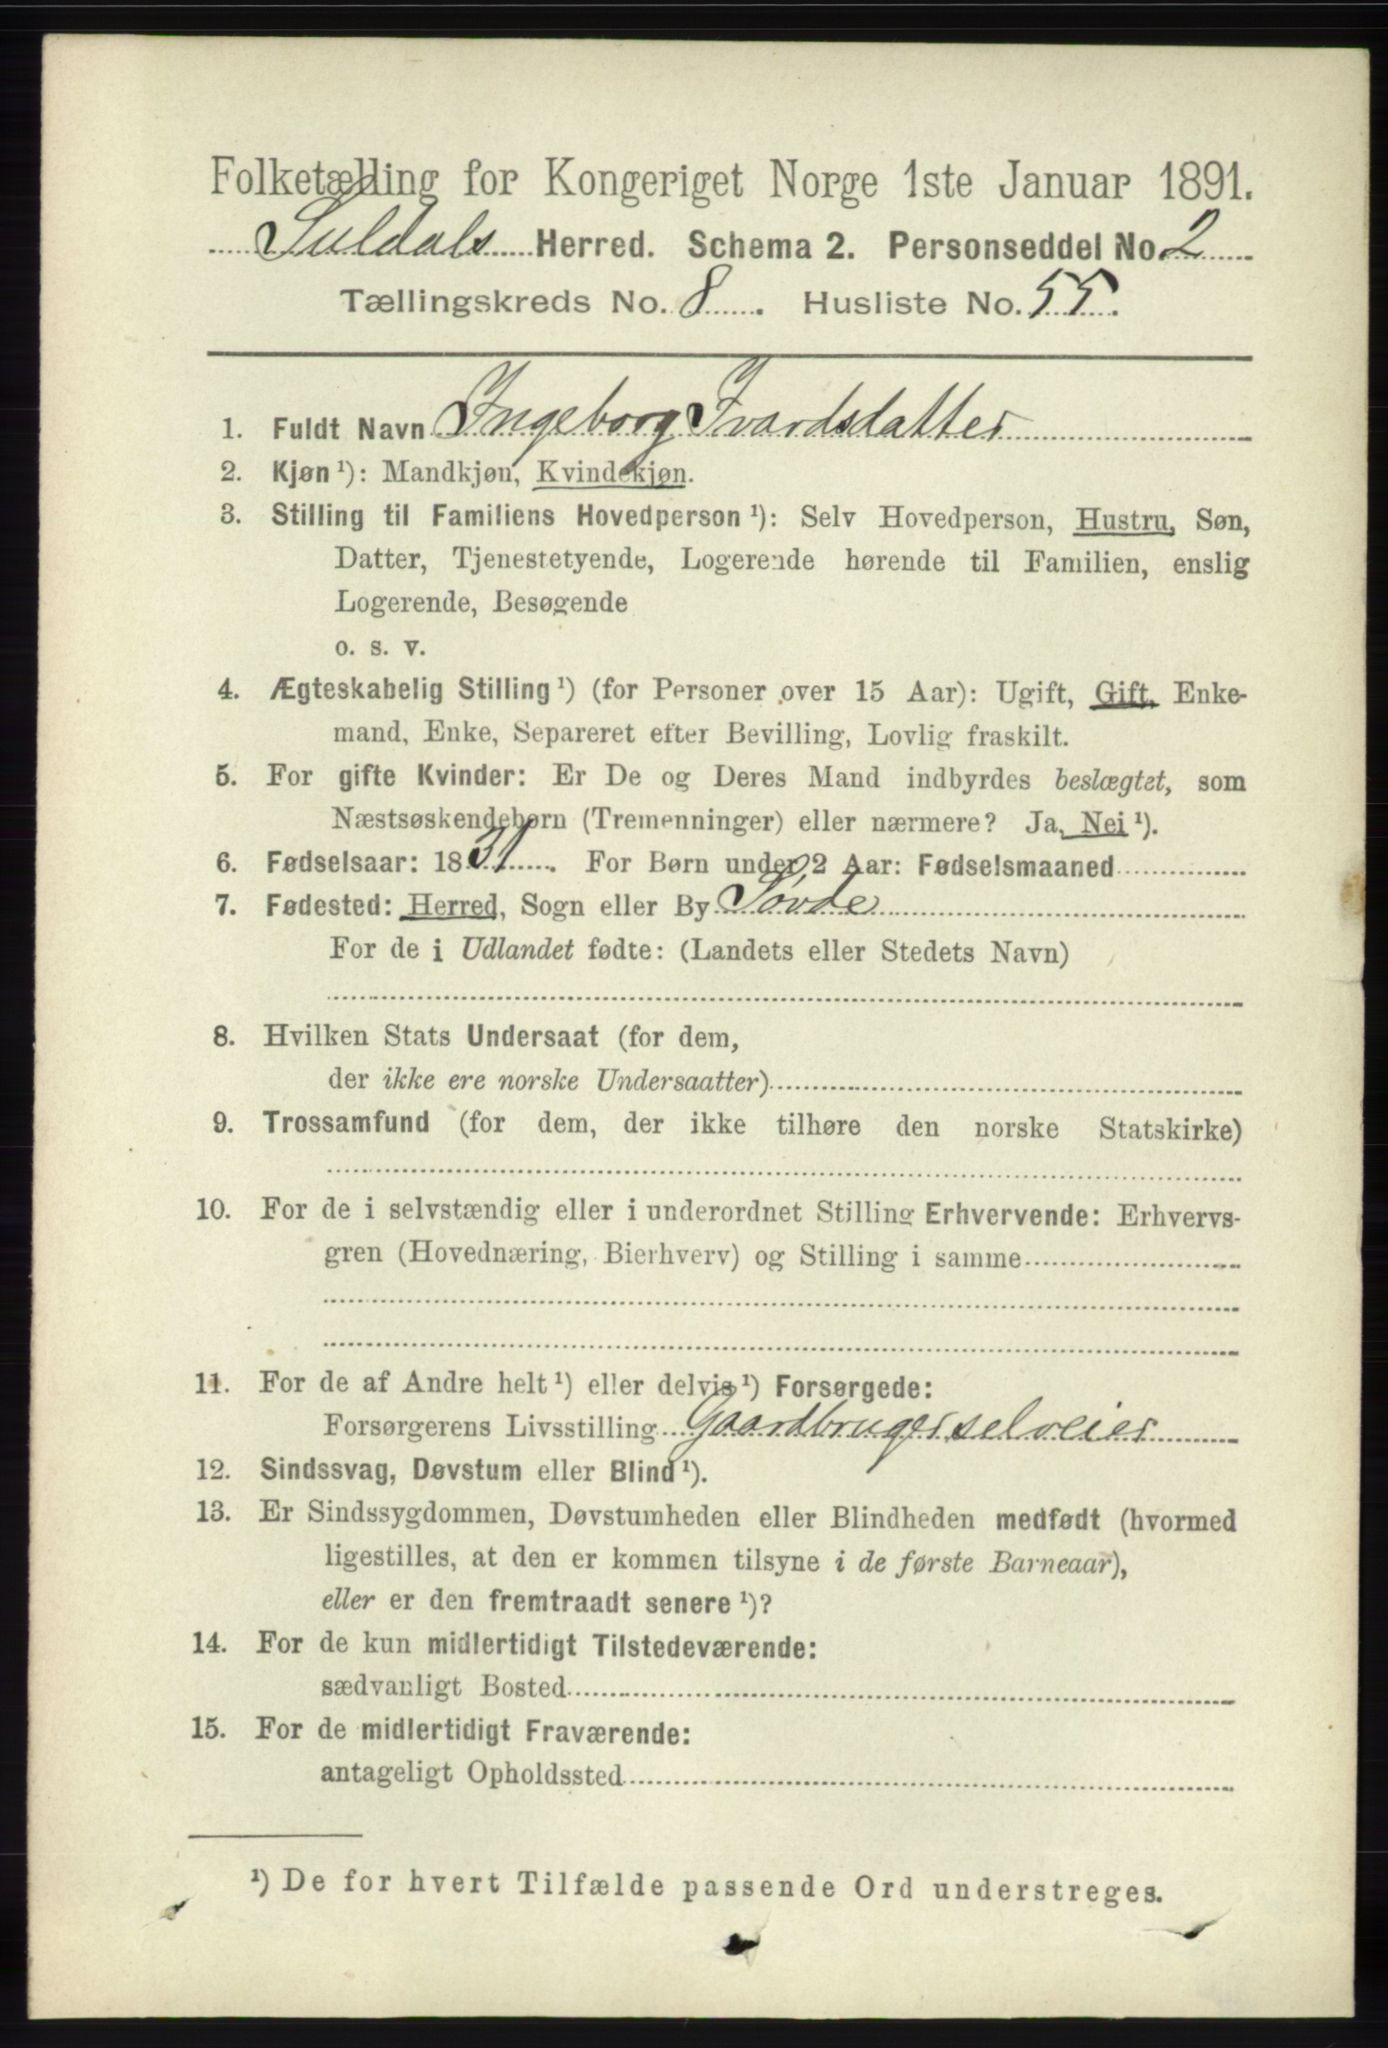 Folketælling for Kongeriget Norge 1ste Januar 1891.
Suldals Herred. Schema 2. Personseddel No. 2
Tællingskreds No. 8. Husliste No. 55.
1. Fuldt Navn Ingeborg Ivardsdatter
2. Kjøn ¹): Mandkjøn, Kvindekjøn.
3. Stilling til Familiens Hovedperson ¹): Selv Hovedperson, Hustru, Søn,
Datter, Tjenestetyende, Logerende hørende til Familien, enslig
Logerende, Besøgende
o. s. v.
4. Ægteskabelig Stilling ¹) (for Personer over 15 Aar): Ugift, Gift, Enke-
mand, Enke, Separeret efter Bevilling, Lovlig fraskilt.
5. For gifte Kvinder: Er De og Deres Mand indbyrdes beslægtet, som
Næstsøskendebørn (Tremenninger) eller nærmere? Ja, Nei ¹).
6. Fødselsaar: 1831. For Børn under 2 Aar: Fødselsmaaned
7. Fødested: Herred, Sogn eller By Søvde
For de i Udlandet fødte: (Landets eller Stedets Navn)
8. Hvilken Stats Undersaat (for dem,
der ikke ere norske Undersaatter)
9. Trossamfund (for dem, der ikke tilhøre den norske Statskirke)
10. For de i selvstændig eller i underordnet Stilling Erhvervende: Erhvervs-
gren (Hovednæring, Bierhverv) og Stilling i samme
11. For de af Andre helt ¹) eller delvis ¹) Forsørgede:
Forsørgerens Livsstilling Gaardbruger, selveier
12. Sindssvag, Døvstum eller Blind ¹).
13. Er Sindssygdommen, Døvstumheden eller Blindheden medfødt (hvormed
ligestilles, at den er kommen tilsyne i de første Barneaar),
eller er den fremtraadt senere ¹)?
14. For de kun midlertidigt Tilstedeværende:
sædvanligt Bosted
15. For de midlertidigt Fraværende:
antageligt Opholdssted
¹) De for hvert Tilfælde passende Ord understreges.